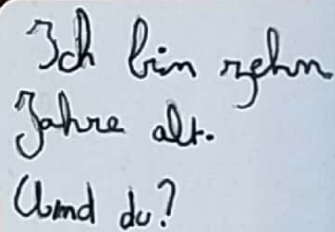 Ich bin zehn
Jahre alt.
Und du?